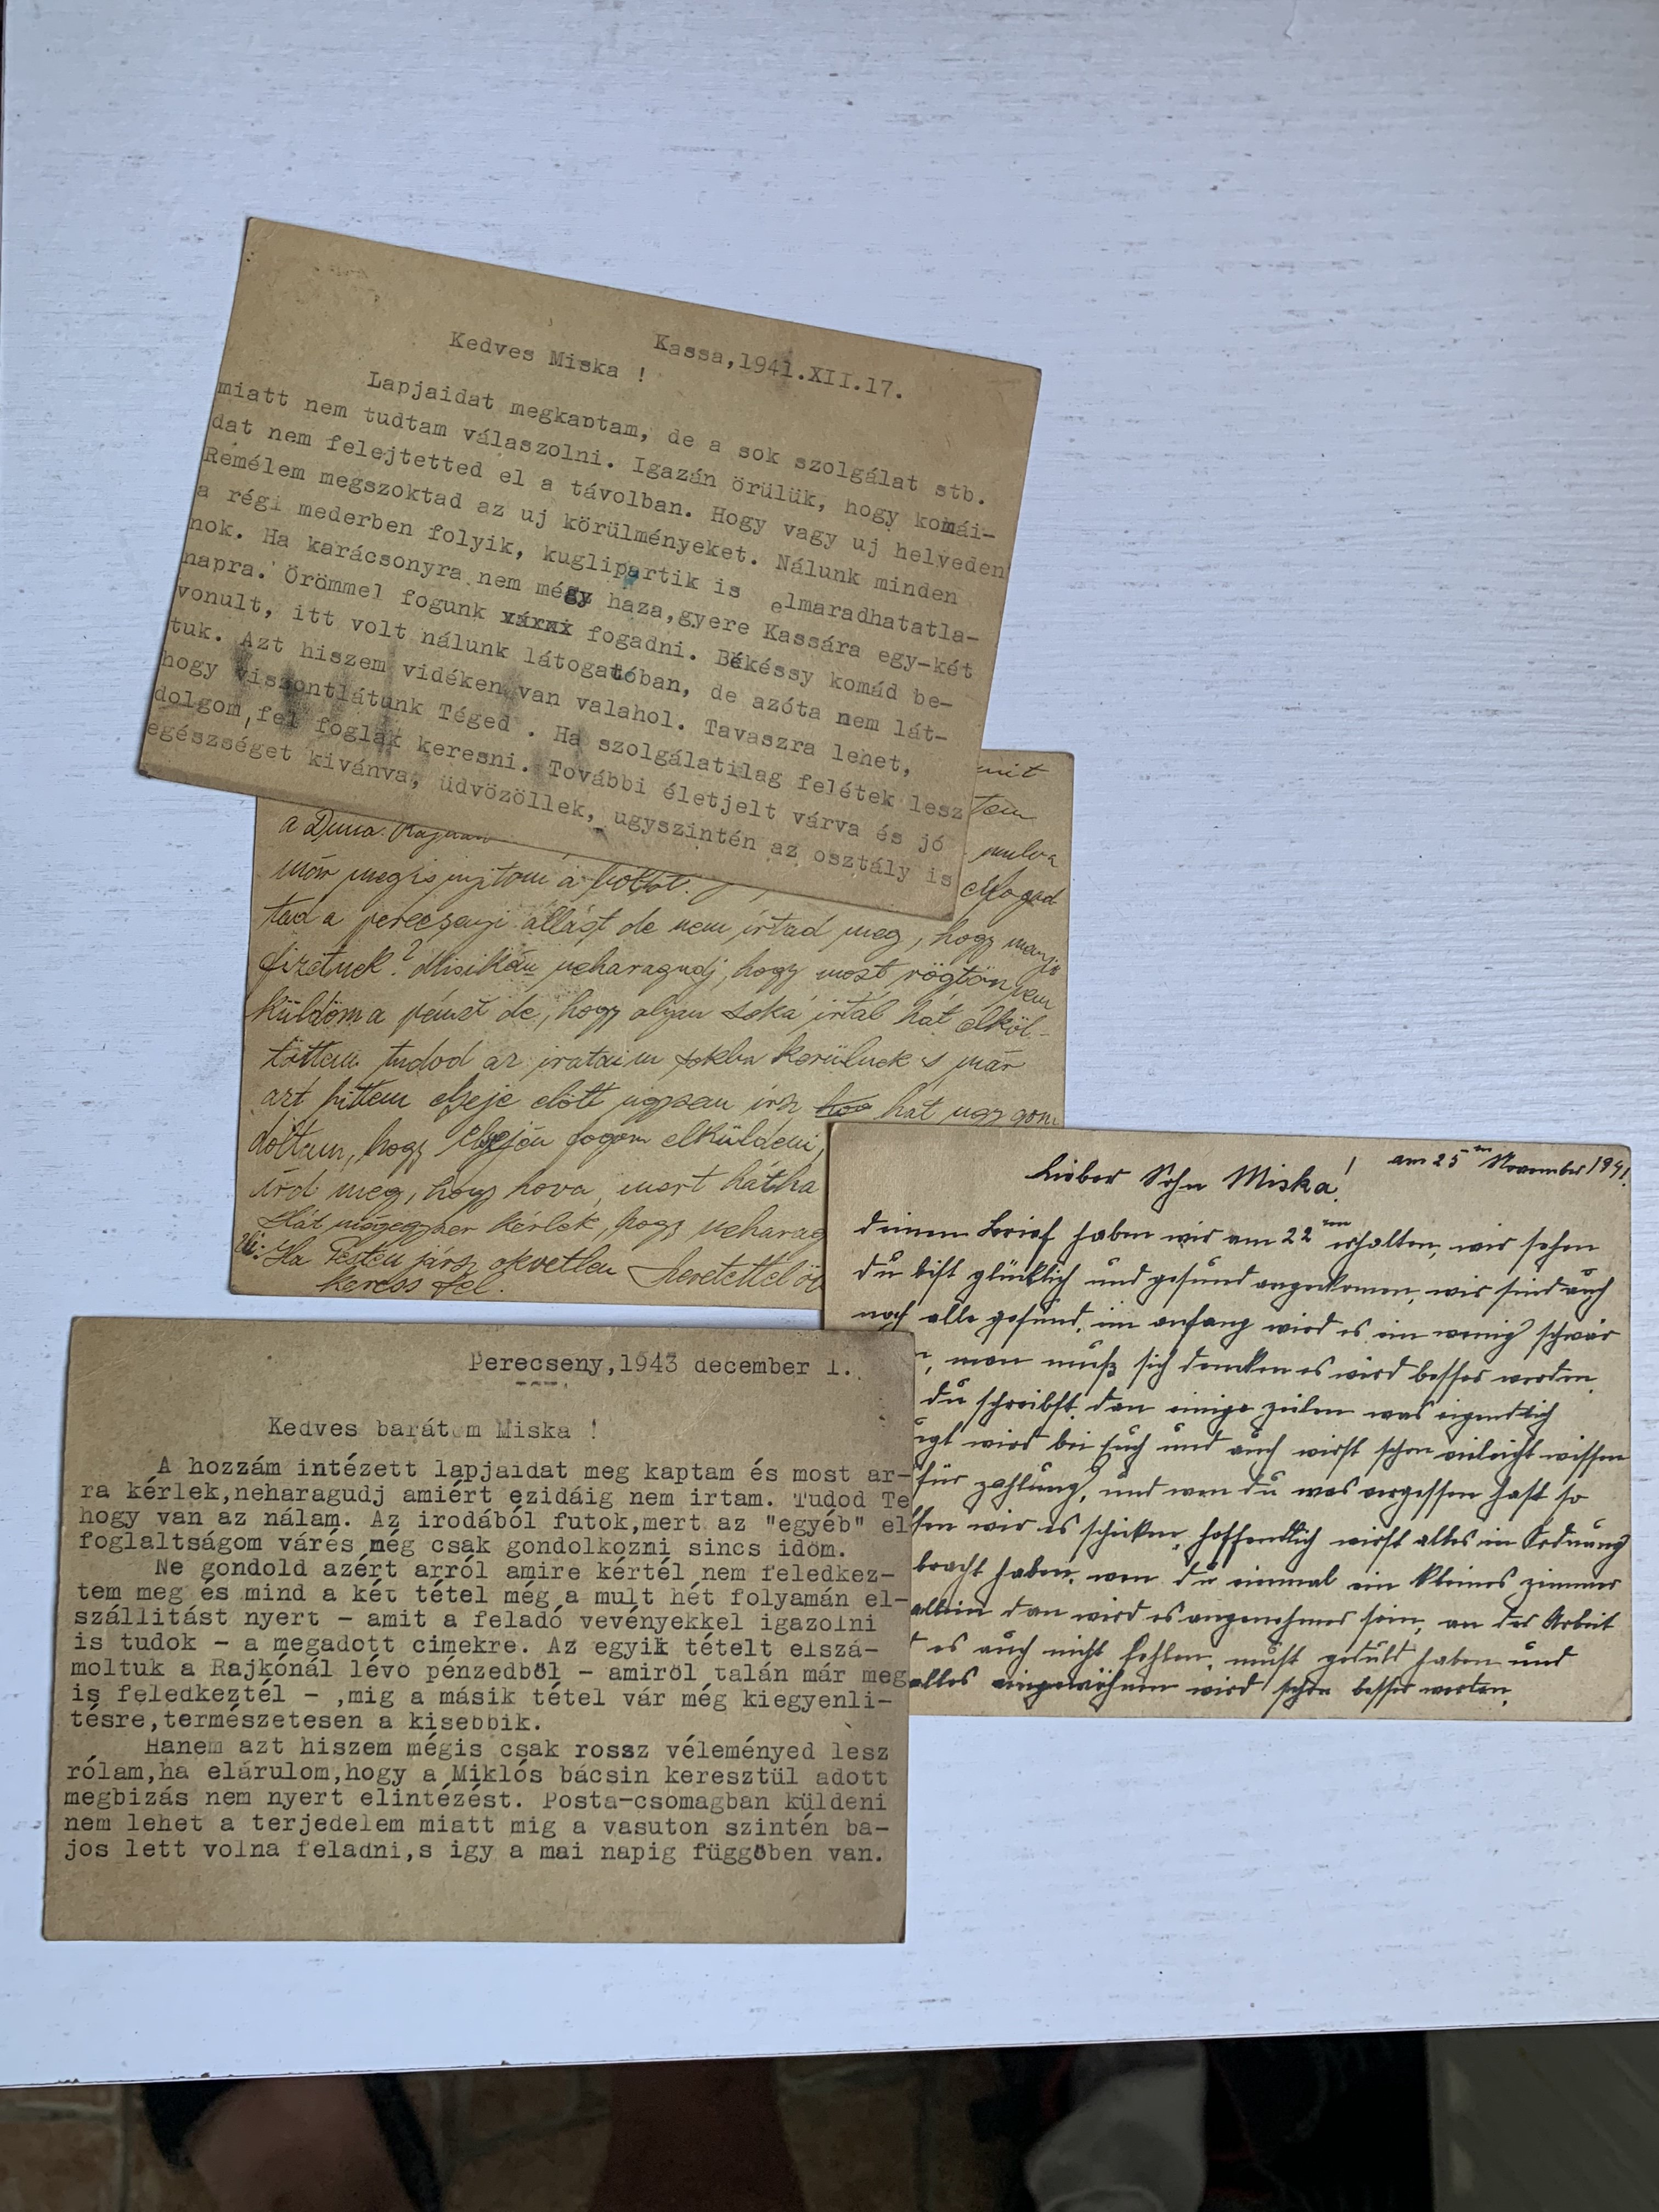 Kassa,1941.XII.17.
Kedves Miska !
Lapjaidat megkaptam, de a sok szolgálat stb.
miatt nem tudtam válaszolni. Igazán örülük, hogy komái-
dat nem felejtetted el a távolban. Hogy vagy uj helyeden
Remélem megszoktad az uj körülményeket. Nálunk minden
a régi mederben folyik, kuglipartik is elmaradhatatla-
nok. Ha karácsonyra nem mégy haza,gyere Kassára egy-két
napra. Örömmel fogunk fogadni. Békéssy komád be-
vonult, itt volt nálunk látogatóban, de azóta nem lát-
tuk. Azt hiszem vidéken van valahol. Tavaszra lehet,
hogy viszontlátunk Téged . Ha szolgálatilag felétek lesz
dolgom,fel foglak keresni. További életjelt várva és jó
egészséget kivánva, üdvözöllek, ugyszintén az osztály is
a Duna
már megis
tad a perecsenyi állást de nem írtad meg, hogy
fizetnek? Misikám neharagudj, hogy most rögtön nem
küldöm a pénzt de, hogy olyan soká írtál hát elköl-
töttem tudod az irataim sokba kerülnek s már
azt hittem elseje előtt ugysem irsz hát ugy gon
doltam, hogy elsején fogom elküldeni,
írd meg, hogy hova, mert hátha
Hát mégegyszer kérlek, hogy neharag
Ha Pesten jársz okvetlen
keress fel.
am 25 November 1941.
Lieber Sohn Miska!
deinen Brief haben wir am 22 erhalten, wir sehen
du bist glücklich und gesund angekomen, wir sind auch
noch alle gesund, im anfang wird es ein wenig schwär
, man muß sich dencken es wird besser werden
du schreibst dan einige zeilen was eigendlich
wird bei Euch und auch wirst schon vieleicht wissen
für zahlung, und wen du was vergessen hast so
wir es schicken, hoffendlich wirst alles in Ordnung
bracht haben, wen du einmal ein kleines zimmer
allein dan wird es angenehmer sein, an der Arbeit
es auch nicht fehlen, müst geduld haben und
alles eingewöhnen wird schon besser werden.
Perecseny,1943 december 1.
Kedves barátom Miska !
A hozzám intézett lapjaidat meg kaptam és most ar-
ra kérlek,neharagudj amiért ezidáig nem irtam. Tudod Te
hogy van az nálam. Az irodából futok,mert az "egyéb" el
foglaltságom várés még csak gondolkozni sincs idöm.
Ne gondold azért arról amire kértél nem feledkez-
tem meg és mind a két tétel még a mult hét folyamán el-
szállitást nyert - amit a feladó vevényekkel igazolni
is tudok - a megadott cimekre. Az egyik tételt elszá-
moltuk a Rajkónál lévo pénzedböl - amiröl talán már meg
is feledkeztél - ,mig a másik tétel vár még kiegyenli-
tésre,természetesen a kisebbik.
Hanem azt hiszem mégis csak rossz véleményed lesz
rólam,ha elárulom,hogy a Miklós bácsin keresztül adott
megbizás nem nyert elintézést. Posta-csomagban küldeni
nem lehet a terjedelem miatt mig a vasuton szintén ba-
jos lett volna feladni,s igy a mai napig függöben van.